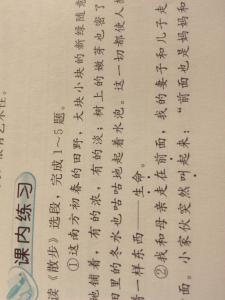 很有艺术性。
课内练习
读《散步》选段，完成1～5题。
①这南方初春的田野，大块小块的新绿随意
地铺着，有的浓，有的淡；树上的嫩芽也密了
田里的冬水也咕咕地起着水泡。这一切都使人
着一样东西——生命。
②我和母亲走在前面，我的妻子和儿子走
面。小家伙突然叫起来：“前面也是妈妈和